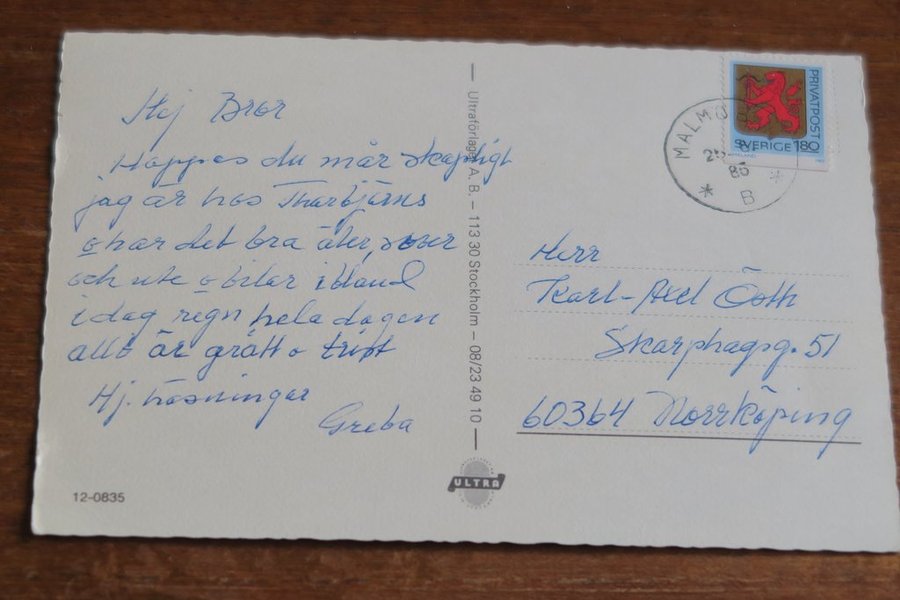 Hej Bror
Hoppas du mår skapligt
jag är hos Thorbjörns
o har det bra äter, sover
och ute o bilar ibland
idag regn hela dagen
allt är grått o trist
Hj. hälsningar
Greta
12-0835
Ultraförlaget A. B. – 113 30 Stockholm – 08/23 49 10
ULTRA
PRIVATPOST
SVERIGE 180
MALMÖ
85
* B *
Herr
Karl-Axel Ööth
Skarphagsg. 51
60364 Norrköping